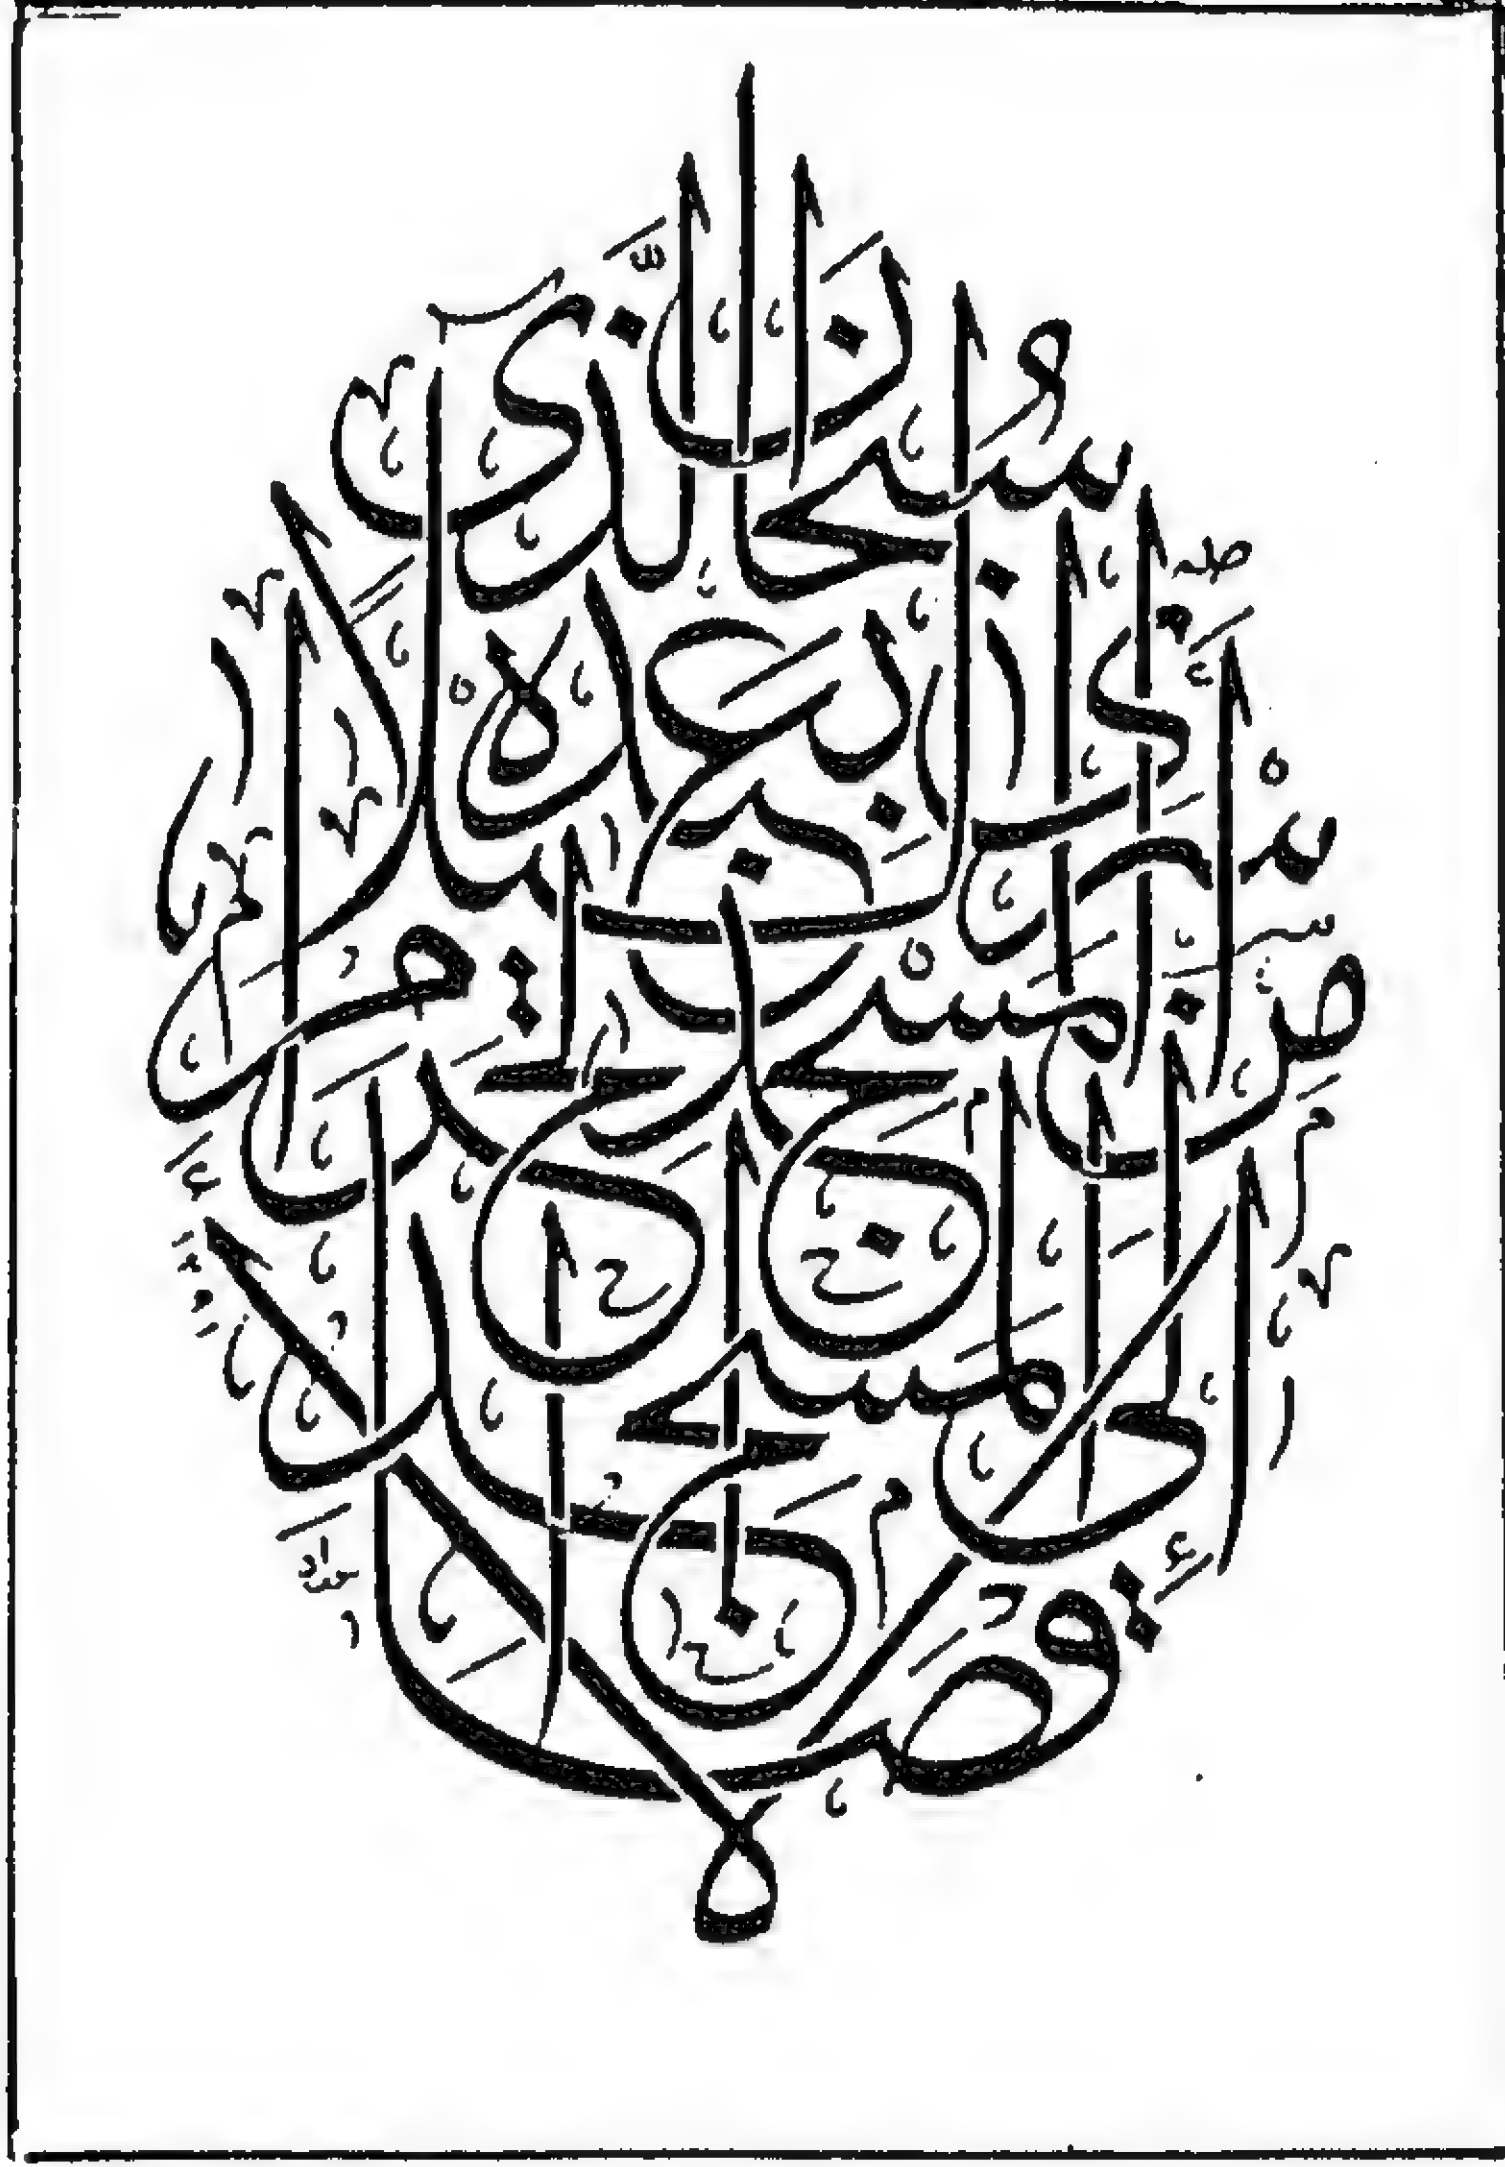 سبحان الذي
أسرى بعبده ليلا
من المسجد الحرام
إلى المسجد
الأقصا